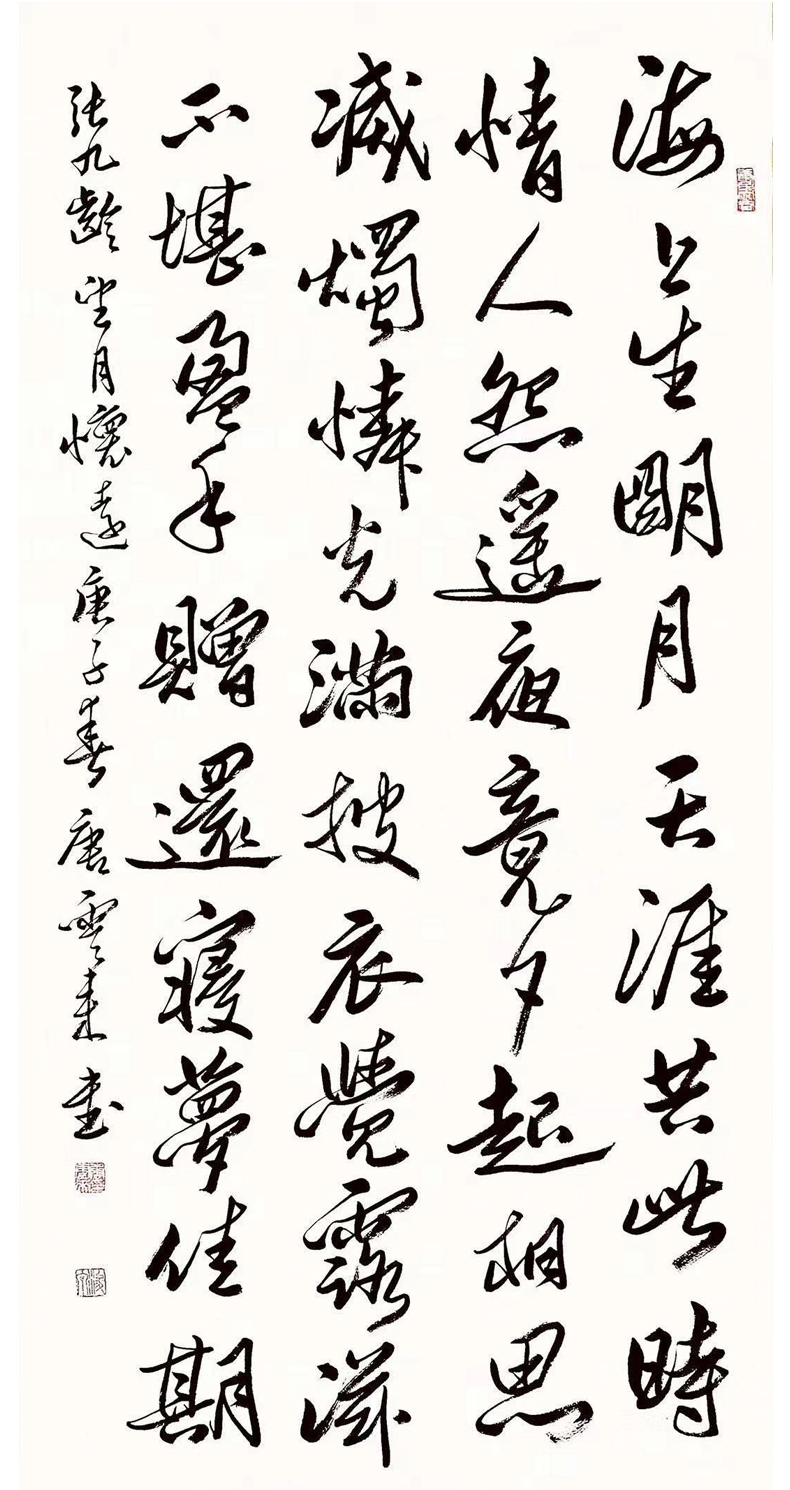 海上生明月天涯共此時
情人怨遥夜竟夕起相思
滅燭憐光滿披衣覺露滋
不堪盈手贈還寢夢佳期
張九齡望月懷遠庚子春唐雲来書